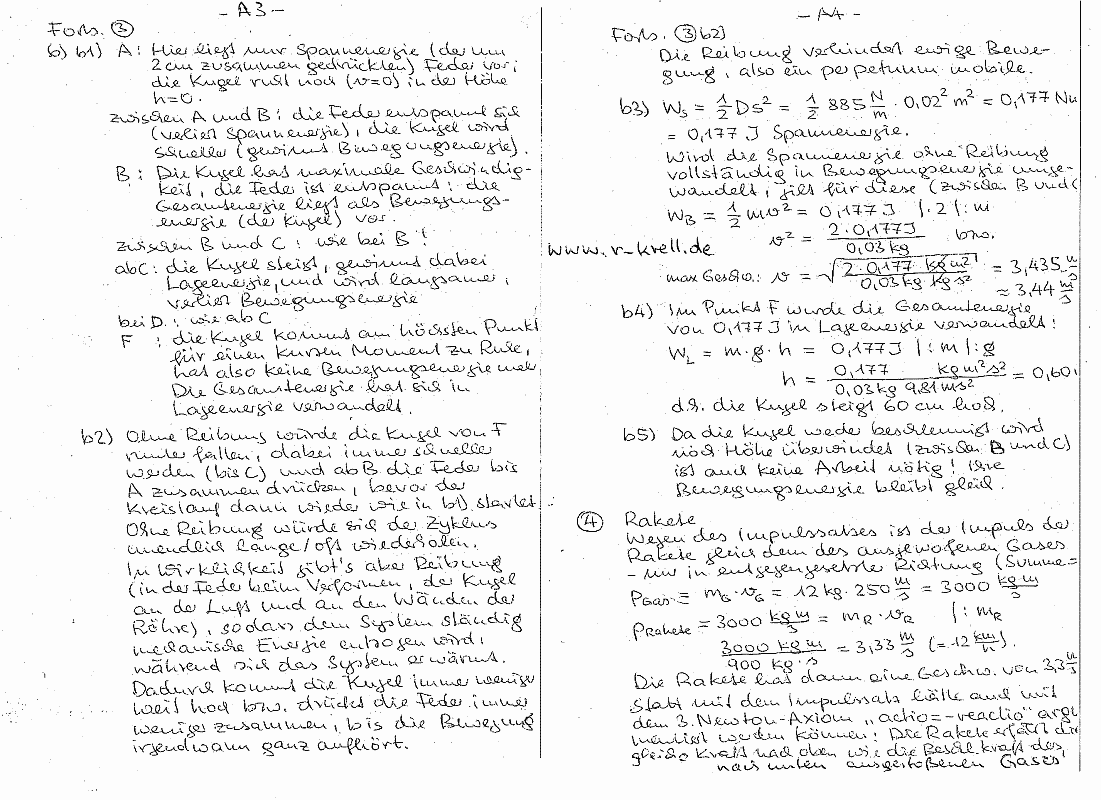 - A3 -
Forts. ③
b) b1) A: Hier liegt nur Spannenergie (der um
2cm zusammen gedrückten) Feder vor;
die Kugel ruht noch (v=0) in der Höhe
h=0.
zwischen A und B: die Feder entspannt sich
(verliert Spannenergie), die Kugel wird
schneller (gewinnt Bewegungsenergie).
B: Die Kugel hat maximale Geschwindig-
keit, die Feder ist entspannt: die
Gesamtenergie liegt als Bewegungs-
energie (der Kugel) vor.
zwischen B und C: wie bei B!
ab C: die Kugel steigt, gewinnt dabei
Lageenergie, und wird langsamer,
verliert Bewegungsenergie
bei D: wie ab C
F: die Kugel kommt am höchsten Punkt
für einen kurzen Moment zu Ruhe,
hat also keine Bewegungsenergie mehr
Die Gesamtenergie hat sich in
Lageenergie verwandelt.
b2) Ohne Reibung würde die Kugel von F
runter fallen, dabei immer schneller
werden (bis C) und ab B die Feder bis
A zusammendrücken, bevor der
Kreislauf dann wieder wie in b1) startet
Ohne Reibung würde sich der Zyklus
unendlich lange/oft wiederholen.
In Wirklichkeit gibt's aber Reibung
(in der Feder beim Verformen, der Kugel
an der Luft und an den Wänden der
Röhre), sodass dem System ständig
mechanische Energie entzogen wird,
während sich das System erwärmt.
Dadurch kommt die Kugel immer weniger
weit hoch bzw. drückt die Feder immer
weniger zusammen, bis die Bewegung
irgendwann ganz aufhört.
- A4 -
Forts. ③ b2)
Die Reibung verhindert ewige Bewe-
gung, also ein perpetuum mobile.
b3) W_S = 1/2 Ds² = 1/2 885 N/m · 0,02² m² = 0,177 Nm
= 0,177 J Spannenergie.
Wird die Spannenergie ohne Reibung
vollständig in Bewegungsenergie umge-
wandelt, gilt für diese (zwischen B und C
W_B = 1/2 mv² = 0,177 J |·2 |:m
v² = 2·0,177J / 0,03 kg bzw.
www.r-krell.de
max Geschw.: v = √(2·0,177 kg m² / 0,03 kg kg s²) = 3,435 m/s
≈ 3,44 m/s
b4) Im Punkt F wurde die Gesamtenergie
von 0,177 J in Lageenergie verwandelt:
W_L = m·g·h = 0,177J |:m |:g
h = 0,177 kg m² s² / 0,03 kg 9,81 m s² = 0,60
d.h. die Kugel steigt 60 cm hoch.
b5) Da die Kugel weder beschleunigt wird
noch Höhe überwindet (zwischen B und C)
ist auch keine Arbeit nötig! Ihre
Bewegungsenergie bleibt gleich.
④ Rakete
Wegen des Impulssatzes ist der Impuls der
Rakete gleich dem des ausgeworfenen Gases
- nur in entgegengesetzte Richtung (Summe=
P_Gas = m_G · v_G = 12 kg · 250 m/s = 3000 kg m/s
P_Rakete = 3000 kg m/s = m_R · v_R |: m_R
3000 kg m / 900 kg · s = 3,33 m/s (= 12 km/h).
Die Rakete hat dann eine Geschw. von 3,3 m/s
Statt mit dem Impulssatz hätte auch mit
dem 3. Newton-Axiom „actio = - reactio" argu
mentiert werden können: Die Rakete erfährt die
gleiche Kraft nach oben wie die Beschl.kraft des
nach unten ausgestoßenen Gases